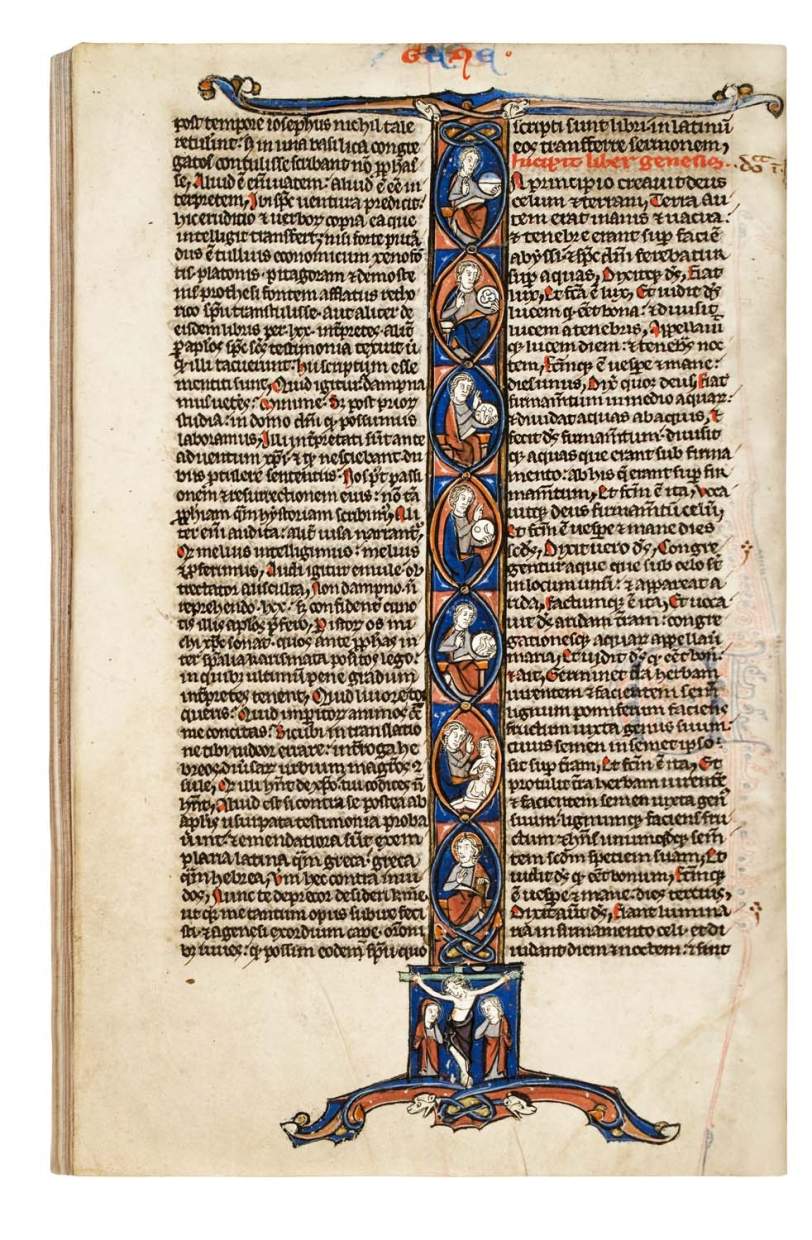 GENE
post tempore iosephus nichil tale
retulint: s; in una basilica congre
gatos contulisse scribant nō ꝓphas
se, Aliud ē enī uatem: aliud ē eē in
terpretem, Ibi spc uentura predicit:
hic eruditio ⁊ uerboꝝ copia ea que
intelligit transfert, nisi forte putā
dus ē tullius economicum xenofō
tis. platonis. pitagoram ⁊ demoste
nis prothesifontem afflatus retho
rico spū transtulisse. aut aliter de
eisdem libris per .lxx. intp̄retes. alit̄
ꝑ aplos spc scs testimonia texuit ut
qd illi tacuerunt: hii scriptum esse
mentiti sunt, Quid igitur: dampna
mus ueteres: Minime. sꝫ post prioꝝ
studia. in domo dn̄i q̄ possumus
laboramus, Illi intp̄retati sūt ante
aduentum xp̄i: ⁊ qd nesciebant du
biis ꝓtulere sententiis. Nos pt passi
onem ⁊ resurrectionem eius: nō tā
ꝓphiam qm̄ hystoriam scribim⁹, Ali
ter enī audita: alit̄ uisa narrant̄,
Qd melius intelligimus: melius
⁊ ꝓferimus, Audi igitur emule. ob
trectator ausculta, Non dampno. ñ
reprehendo .lxx. sꝫ confident̄ cunc
tis illis aplos p̄fero, Per istoꝝ os mi
chi xp̄c sonat. quos ante ꝓphas in
ter spalia karismata positos lego:
in quibꝫ ultimū pene gradum
intp̄retes tenent, Quid liuore tor
queris: Quid imp̄itoꝝ animos ↄ̄t
me concitas: Sicubi in translatio
ne tibi uideor errare: introga he
breos, diu̇saꝝ urbium magr̄os ↄ
sule, Qd illi hn̄t de xp̄o. tui codices ñ
hn̄t, Aliud est si contra se postea ab
aplis usurpata testimonia proba
uunt: ⁊ emendatiora sūt exem
plaria latina qm̄ greca: greca
qm̄ hebrea, Vm hec contra inui
dos, Nunc te deprecor desideri k̄me
ut qr me tantum opus subire feci
sti. ⁊ a genesi exordium cape. or̄onibꝫ
iuues: q possim eodem spū quo
scripti sunt libri. in latinū
eos transferre sermonem,
Incipit liber genesis. c̄. i.
N principio creauit deus
celum ⁊ terram, Terra au
tem erat inanis ⁊ uacua:
⁊ tenebre erant sup faciē
abyssi. ⁊ spc dn̄i ferebatur
sup aquas, Dixitqꝫ ds̄, Fiat
lux, Et fctā ē lux, Et uidit ds̄
lucem q̄ eēt bona: ⁊ diuisit
lucem a tenebris, Appellauit
qꝫ lucem diem: ⁊ tenebs noc
tem, Fctmqꝫ ē uespe ⁊ mane:
dies unus, Dix̄ quoꝫ deus, Fiat
firmamtum in medio aquaꝝ:
⁊ diuidat aquas ab aquis, Et
fecit ds̄ firmamtum. diuisit
qꝫ aquas que erant sub firma
mento: ab his q̄ erant sup fir
mamtum, Et fctm̄ ē ita, Voca
uitqꝫ deus firmamtū celū,
Et fctm̄ ē uespe ⁊ mane dies
scds, Dixit uero ds̄, Congre
gentur aque que sub celo st̄
in locum unū: ⁊ appareat a
rida, factumqꝫ ē ita, Et uoca
uit ds̄ aridam tr̄am: congre
gationesqꝫ aquaꝝ appellauit
maria, Et uidit ds̄ q̄ eēt bon̄:
⁊ ait, Germinet tr̄a herbam
uirentem ⁊ facientem sem̄
lignum pomiferum faciens
fructum iuxta genus suum:
cuius semen in semet ipso
sit sup tr̄am, Et fctm̄ ē ita, Et
protulit tr̄a herbam uirentē
⁊ facientem semen iuxta gen̄
suum: lignumqꝫ faciens fru
ctum ⁊ hn̄s unumqdqꝫ sem̄
tem scdm speciem suam, Et
uidit ds̄ q̄ eēt bonum, Fctmqꝫ
ē uespe ⁊ mane: dies tercius,
Dixit aūt ds̄, Fiant lumina
ria in firmamento celi. et di
uidant diem ⁊ noctem: ⁊ sint